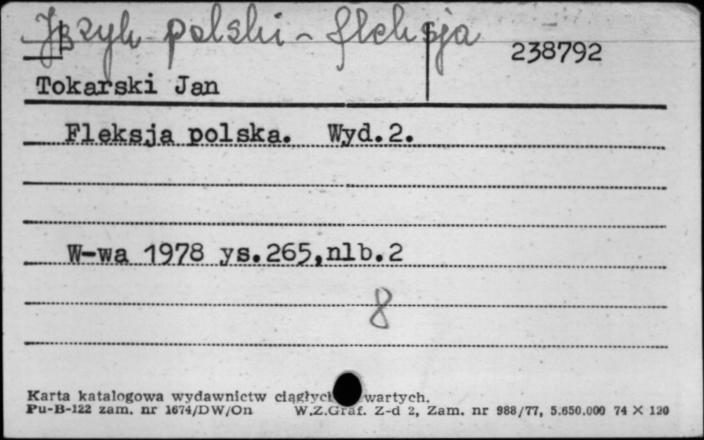 Język polski - fleksja
238792
B
Tokarski Jan
Fleksja polska. Wyd.2.
W-wa 1978 ys.265,nlb.2
8
Karta katalogowa wydawnictw ciągłych wartych.
Pu-B-122 zam. nr 1674/DW/On W.Z.Graf. Z-d 2, Zam. nr 988/77, 5.650.000 74 X 120